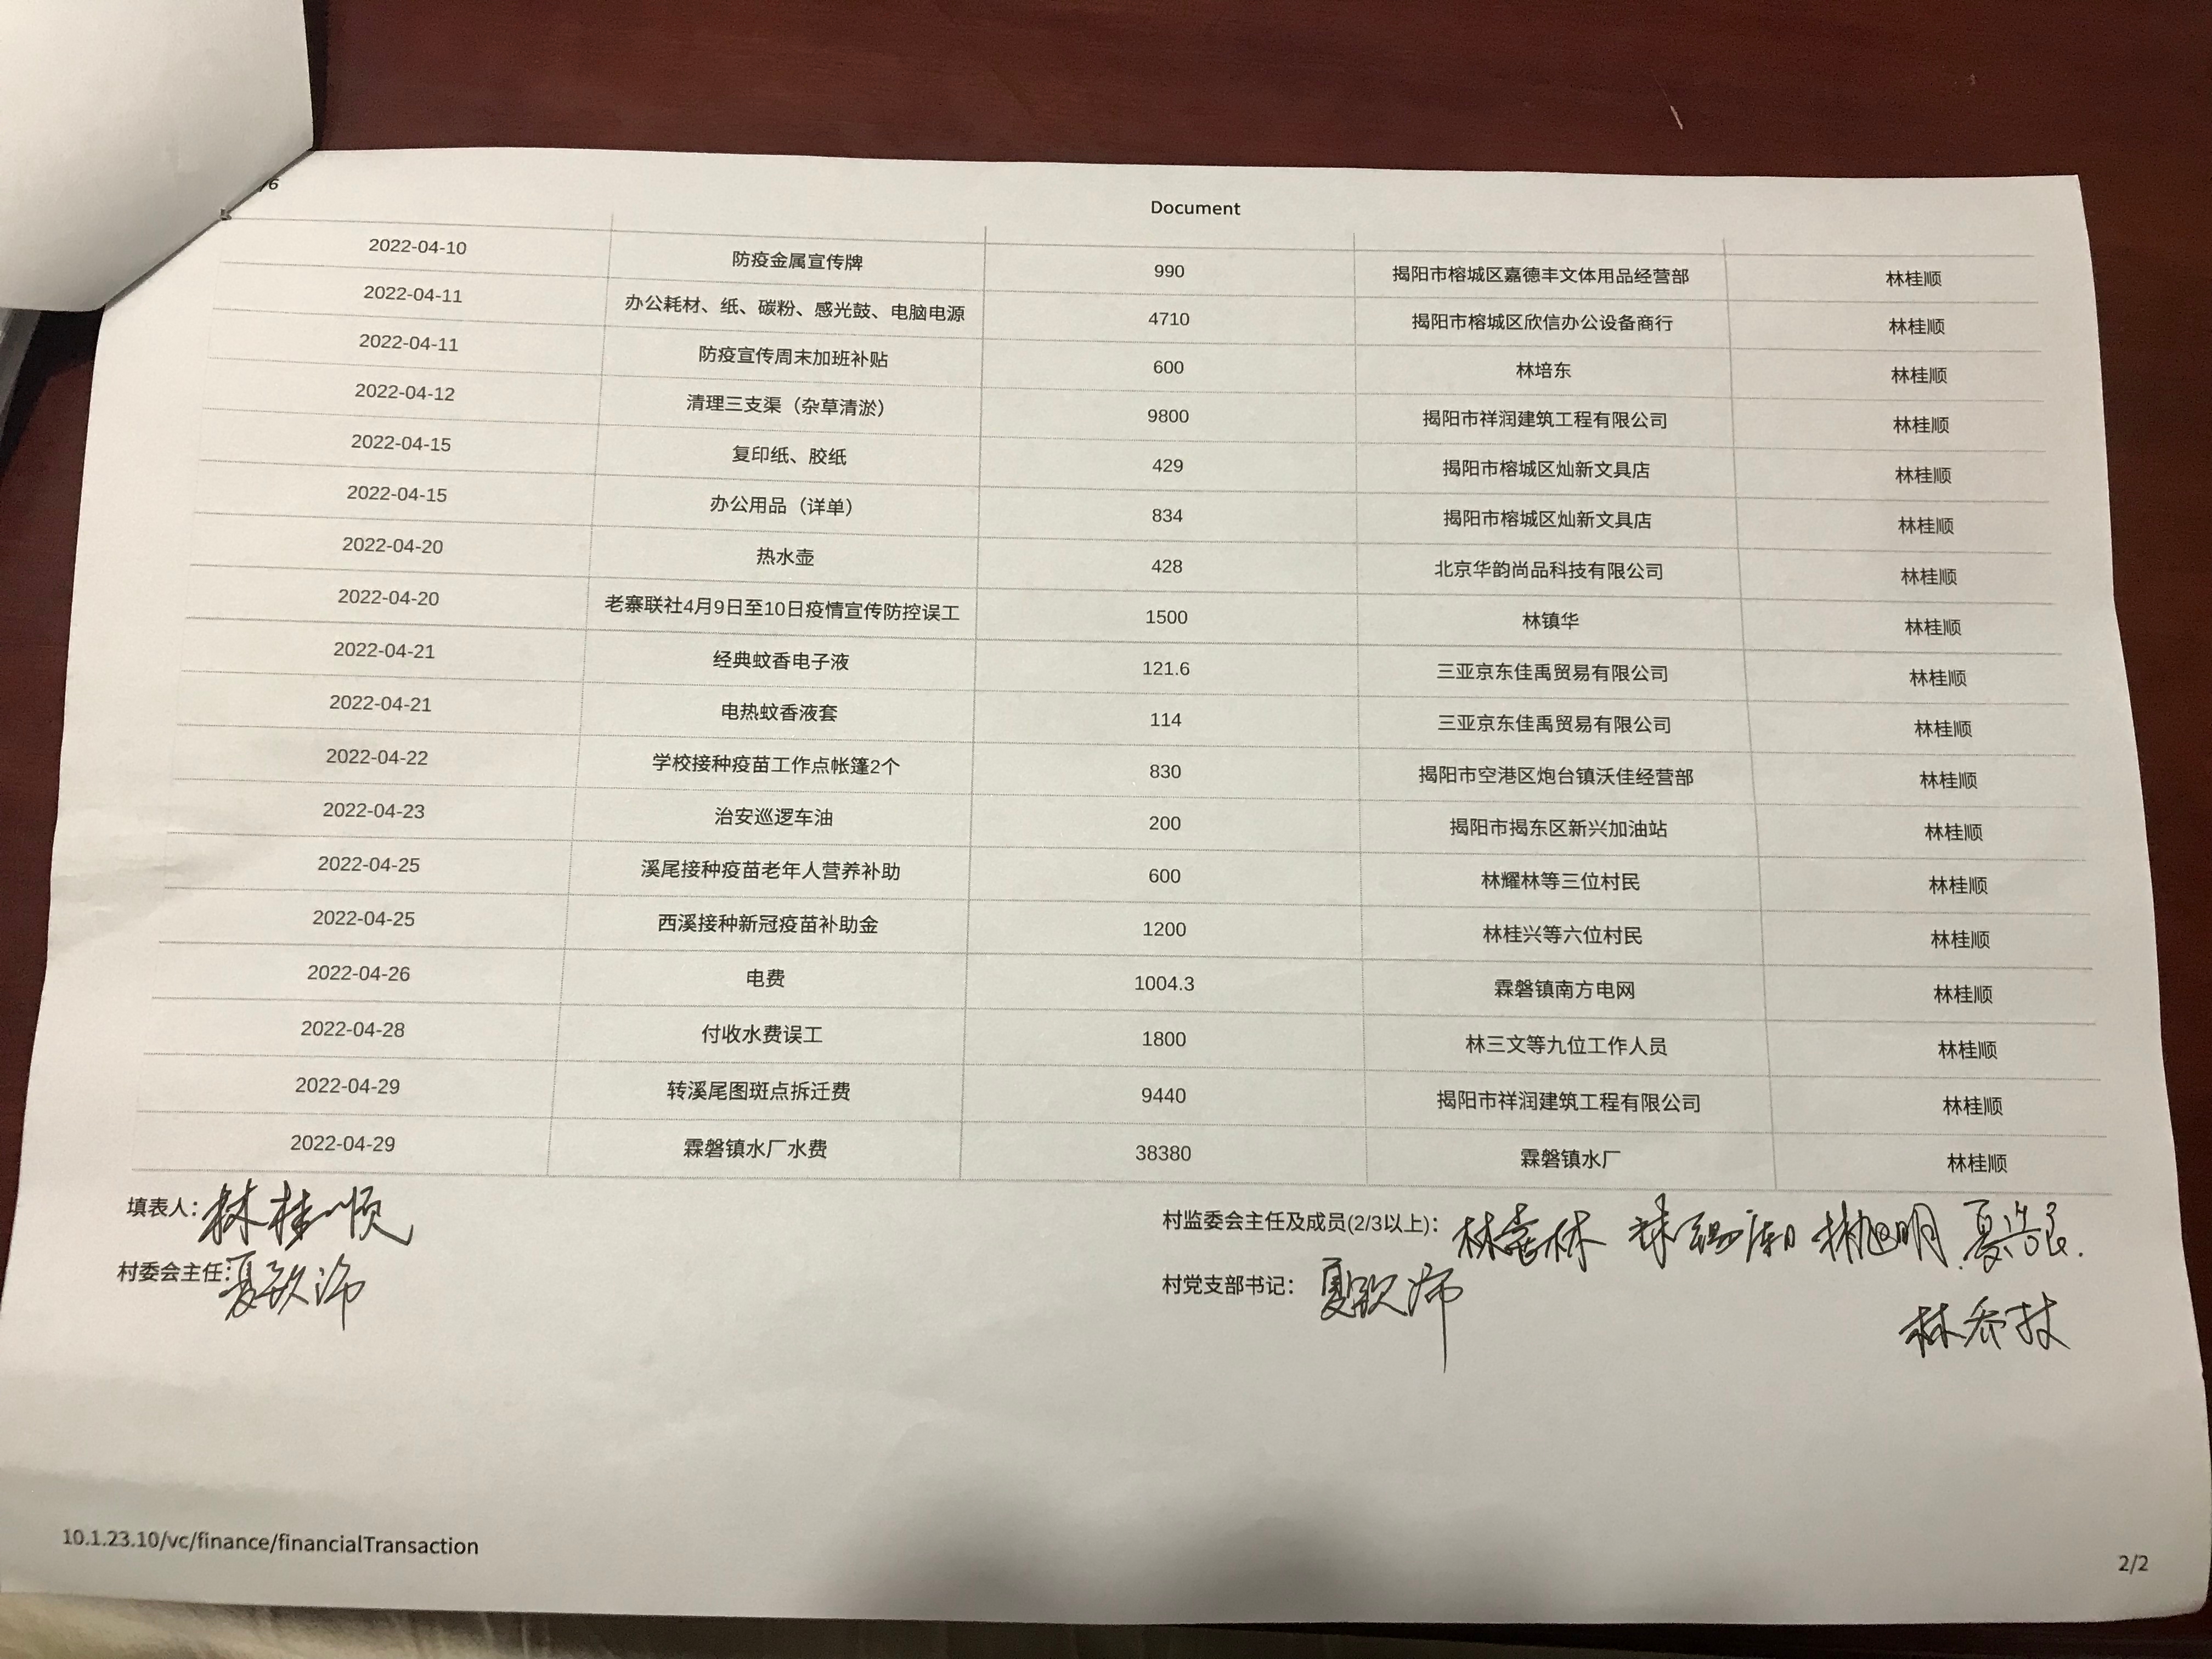 /6
Document
2022-04-10 防疫金属宣传牌 990 揭阳市榕城区嘉德丰文体用品经营部 林桂顺
2022-04-11 办公耗材、纸、碳粉、感光鼓、电脑电源 4710 揭阳市榕城区欣信办公设备商行 林桂顺
2022-04-11 防疫宣传周末加班补贴 600 林培东 林桂顺
2022-04-12 清理三支渠（杂草清淤） 9800 揭阳市祥润建筑工程有限公司 林桂顺
2022-04-15 复印纸、胶纸 429 揭阳市榕城区灿新文具店 林桂顺
2022-04-15 办公用品（详单） 834 揭阳市榕城区灿新文具店 林桂顺
2022-04-20 热水壶 428 北京华韵尚品科技有限公司 林桂顺
2022-04-20 老寨联社4月9日至10日疫情宣传防控误工 1500 林镇华 林桂顺
2022-04-21 经典蚊香电子液 121.6 三亚京东佳禹贸易有限公司 林桂顺
2022-04-21 电热蚊香液套 114 三亚京东佳禹贸易有限公司 林桂顺
2022-04-22 学校接种疫苗工作点帐篷2个 830 揭阳市空港区炮台镇沃佳经营部 林桂顺
2022-04-23 治安巡逻车油 200 揭阳市揭东区新兴加油站 林桂顺
2022-04-25 溪尾接种疫苗老年人营养补助 600 林耀林等三位村民 林桂顺
2022-04-25 西溪接种新冠疫苗补助金 1200 林桂兴等六位村民 林桂顺
2022-04-26 电费 1004.3 霖磐镇南方电网 林桂顺
2022-04-28 付收水费误工 1800 林三文等九位工作人员 林桂顺
2022-04-29 转溪尾图斑点拆迁费 9440 揭阳市祥润建筑工程有限公司 林桂顺
2022-04-29 霖磐镇水厂水费 38380 霖磐镇水厂 林桂顺
填表人：林桂顺 村监委会主任及成员(2/3以上)：
村委会主任： 村党支部书记：
10.1.23.10/vc/finance/financialTransaction
2/2